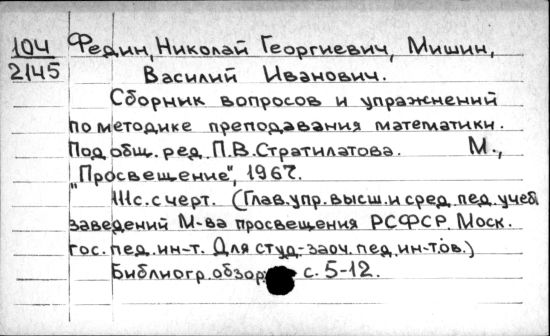 104 Федин, Николай Георгиевич, Мишин,
2145 Василий Иванович.
Сборник вопросов и упражнений
по методике преподавания математики.
Под общ. ред. П.В. Стратилатова. М.,
"Просвещение", 1967.
111с. с черт. (Глав. упр. высш. и сред. пед. учеб.
заведений М-ва просвещения РСФСР. Моск.
гос. пед. ин-т. Для студ-заоч. пед. ин-тов.)
Библиогр. обзор: с. 5-12.